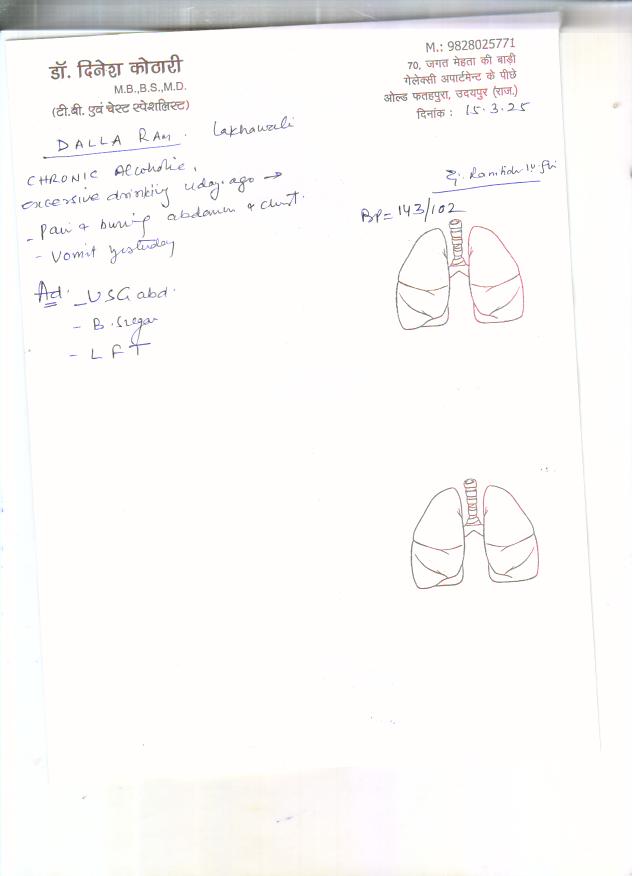 डॉ. दिनेश कोठारी
M.B.,B.S.,M.D.
(टी.बी. एवं चेस्ट स्पेशलिस्ट)
M.: 9828025771
70, जगत मेहता की बाड़ी
गेलेक्सी अपार्टमेन्ट के पीछे
ओल्ड फतहपुरा, उदयपुर (राज.)
दिनांक : 15.3.25
DALLA RAM. Lakhawali
CHRONIC Alcoholic,
excessive drinking day ago →
- Pain & burning abdomen & chest.
- Vomit yesterday
BP = 143/102
Ad. - USG abd.
- B. Sugar
- LFT